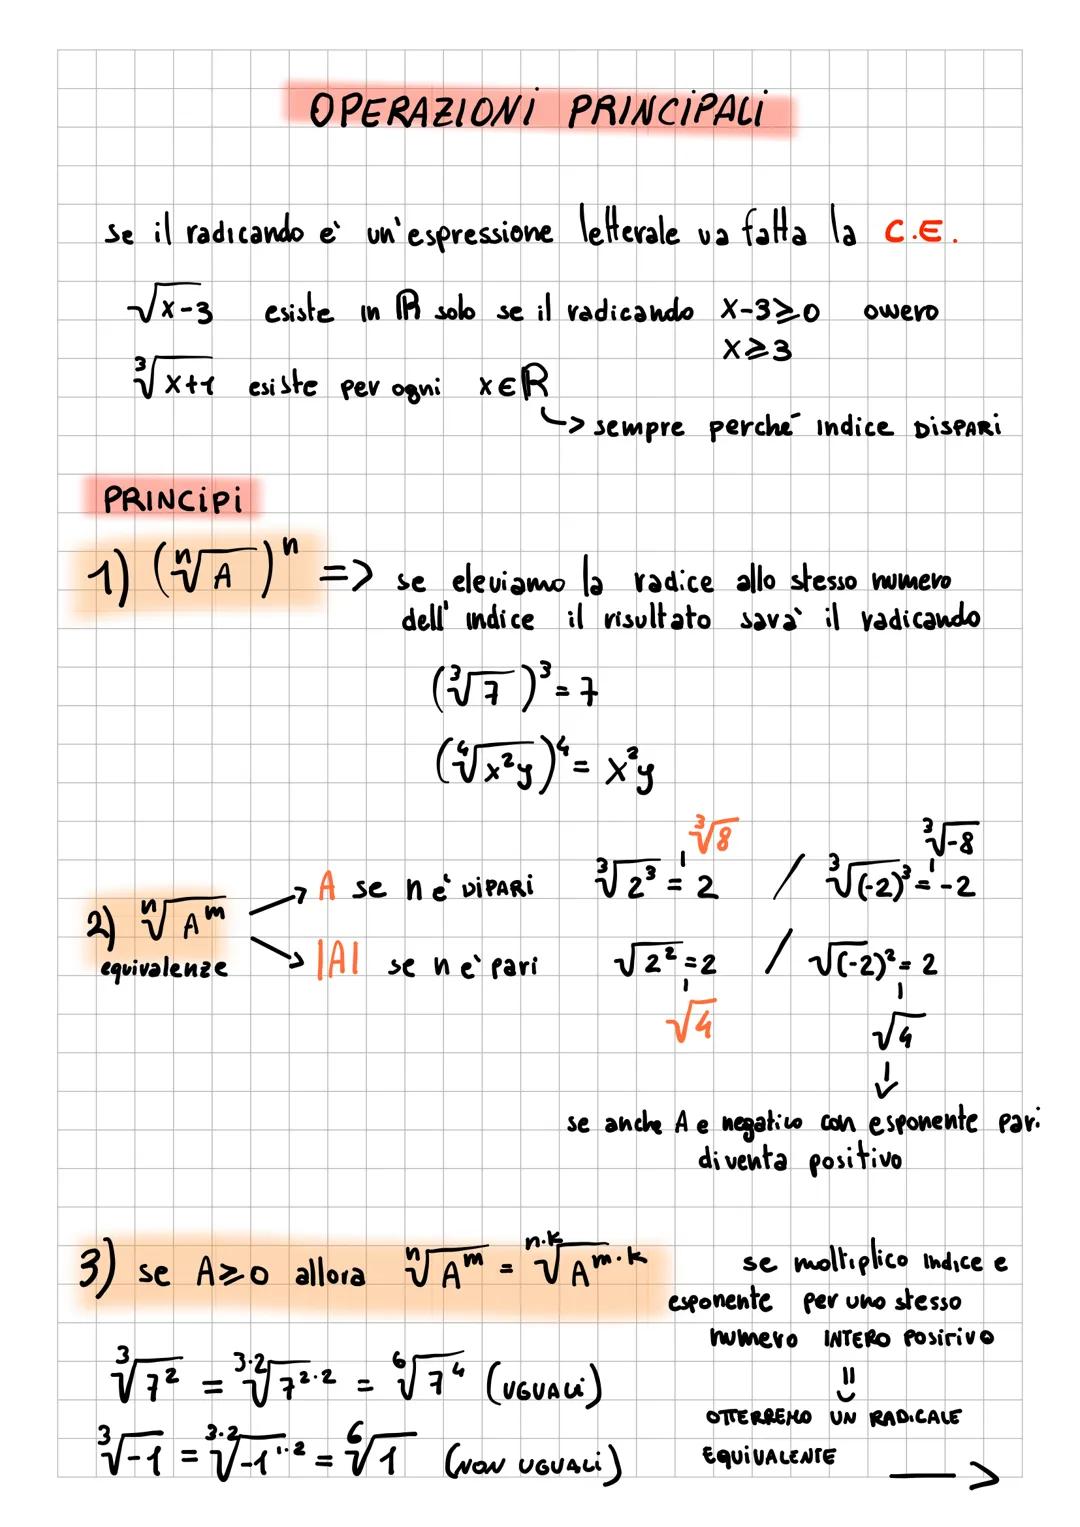 OPERAZIONI PRINCIPALI
se il radicando e' un'espressione letterale va fatta la C.E.
√x-3 esiste in ℝ solo se il radicando x-3⩾0 ovvero
x⩾3
³√x+1 esiste per ogni x∈ℝ
-> sempre perché indice DISPARI
PRINCIPI
1) (ⁿ√A)ⁿ => se eleviamo la radice allo stesso numero
dell'indice il risultato sara' il radicando
(³√7)³=7
(⁴√x²y)⁴= x²y
³√8 ³√-8
-> A se n e' DIPARI ³√2³ = 2 / ³√(-2)³ = -2
2) ⁿ√Aᵐ
equivalenze -> |A| se n e' pari √2² =2 / √(-2)²= 2
√4 √4
se anche A e negativo con esponente pari
diventa positivo
3) se A⩾0 allora ⁿ√Aᵐ = ⁿ·ᵏ√Aᵐ·ᵏ se moltiplico indice e
esponente per uno stesso
numero INTERO POSITIVO
³√7² = ³·²√7²·² = ⁶√7⁴ (UGUALI)
OTTERREMO UN RADICALE
³√-1 = ³·²√-1¹·² = ⁶√1 (NON UGUALI) EQUIVALENTE ->